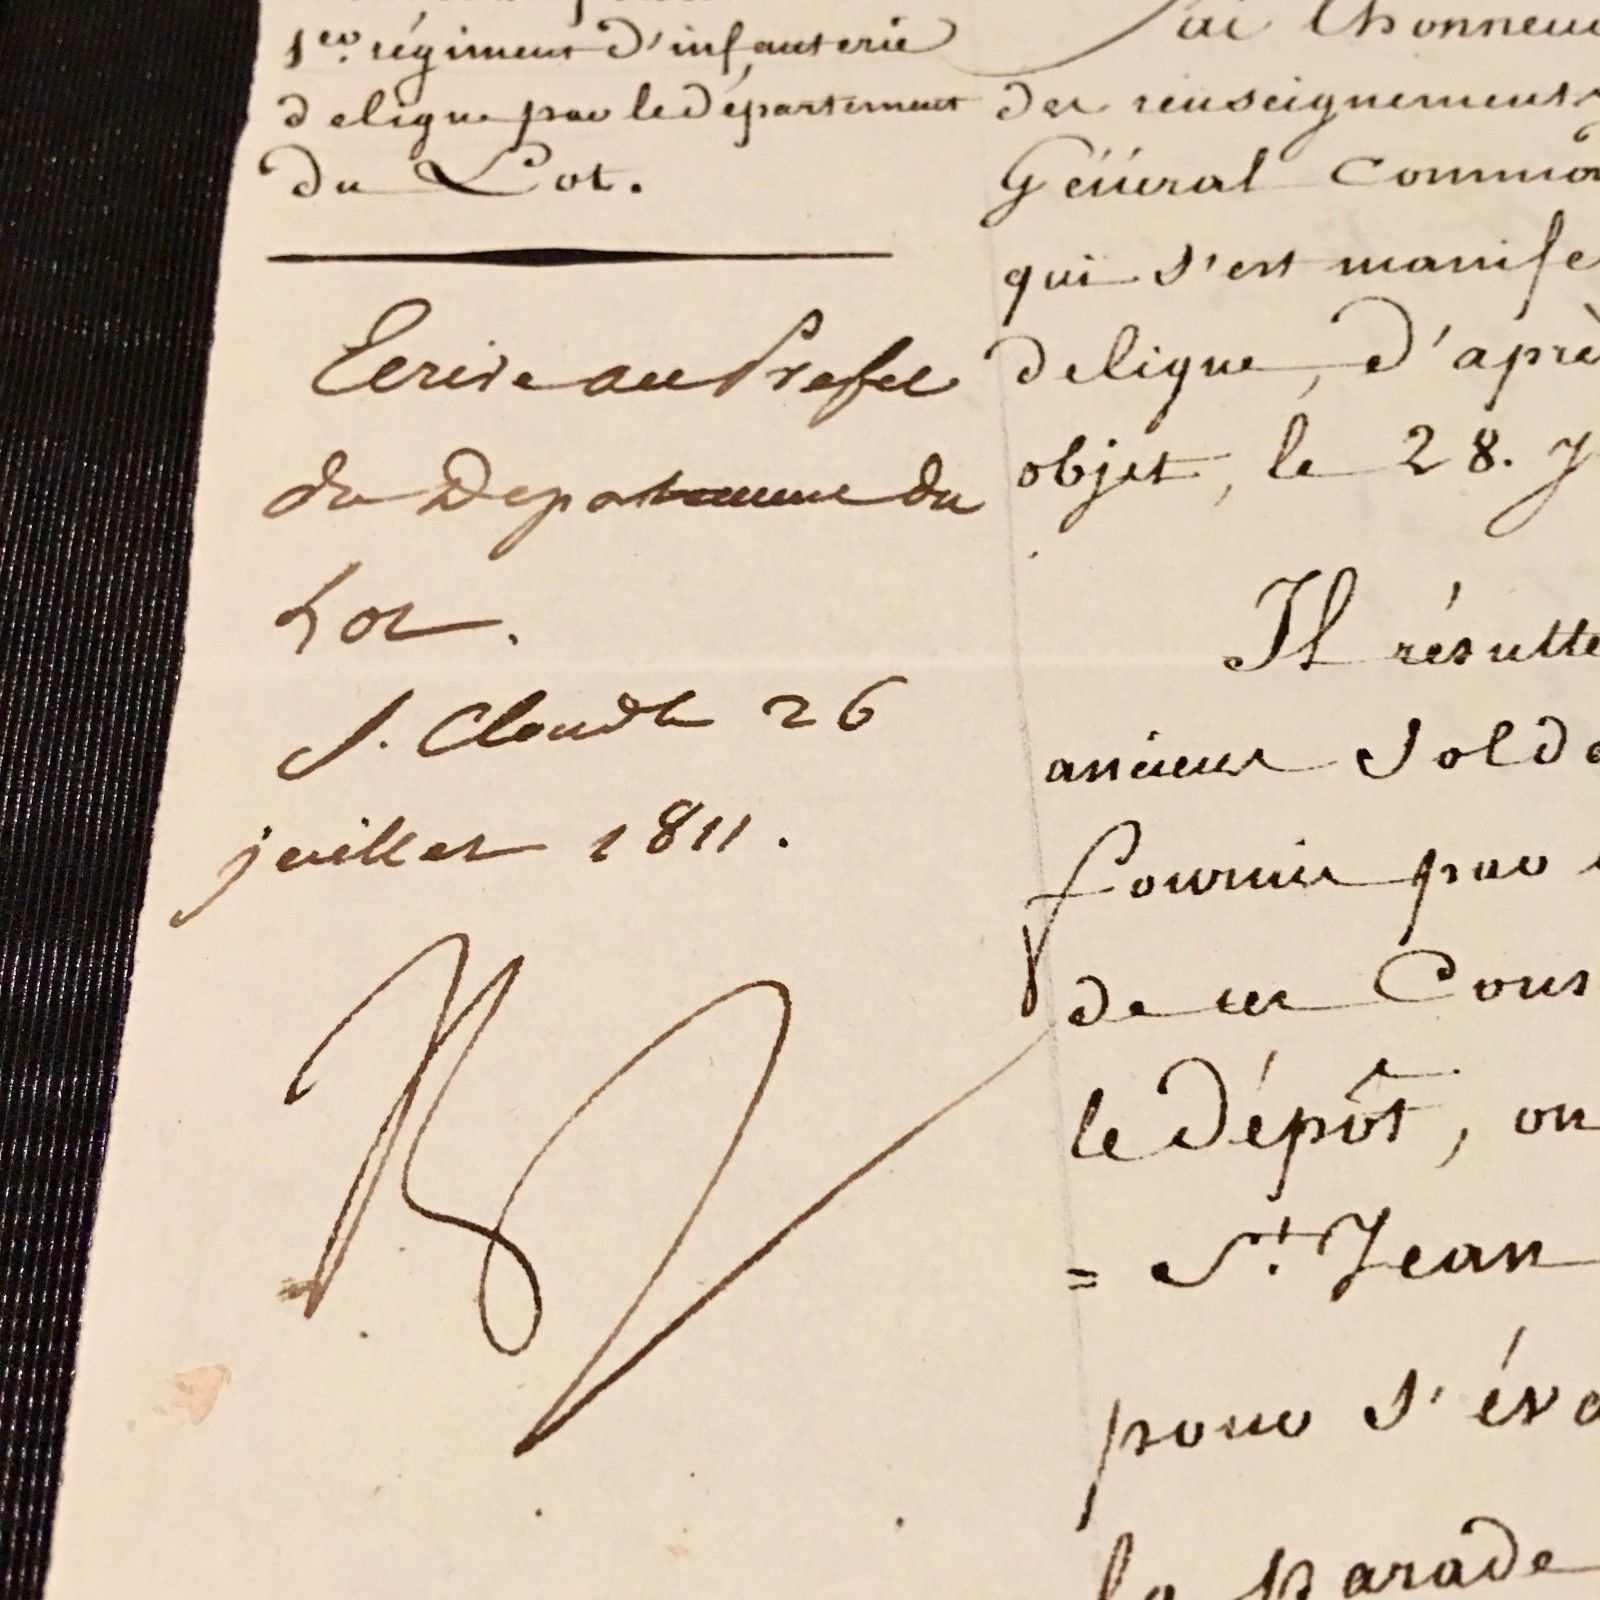 1er. régiment d'infanterie
de ligne par le département
du Lot.
Ecrire au Prefet
du Departement du
Lot.
S. Cloud le 26
juillet 1811.
J'ai l'honneur
des renseignements
Général Comm
qui s'est manife
de ligne, d'aprè
objet, le 28. J
Il résulte
anciens Solda
fournis par
de ces Cons
le Dépôt, on
= St. Jean
pour s'éva
la parade